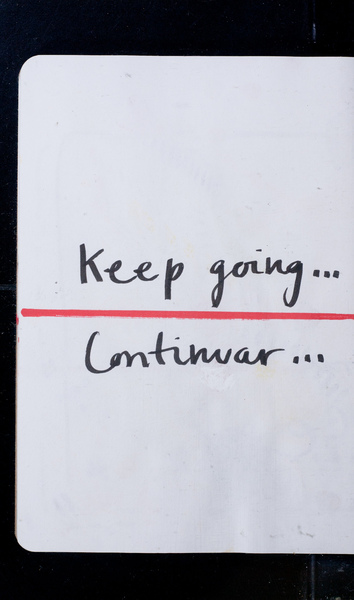 Keep going...
Continuar...